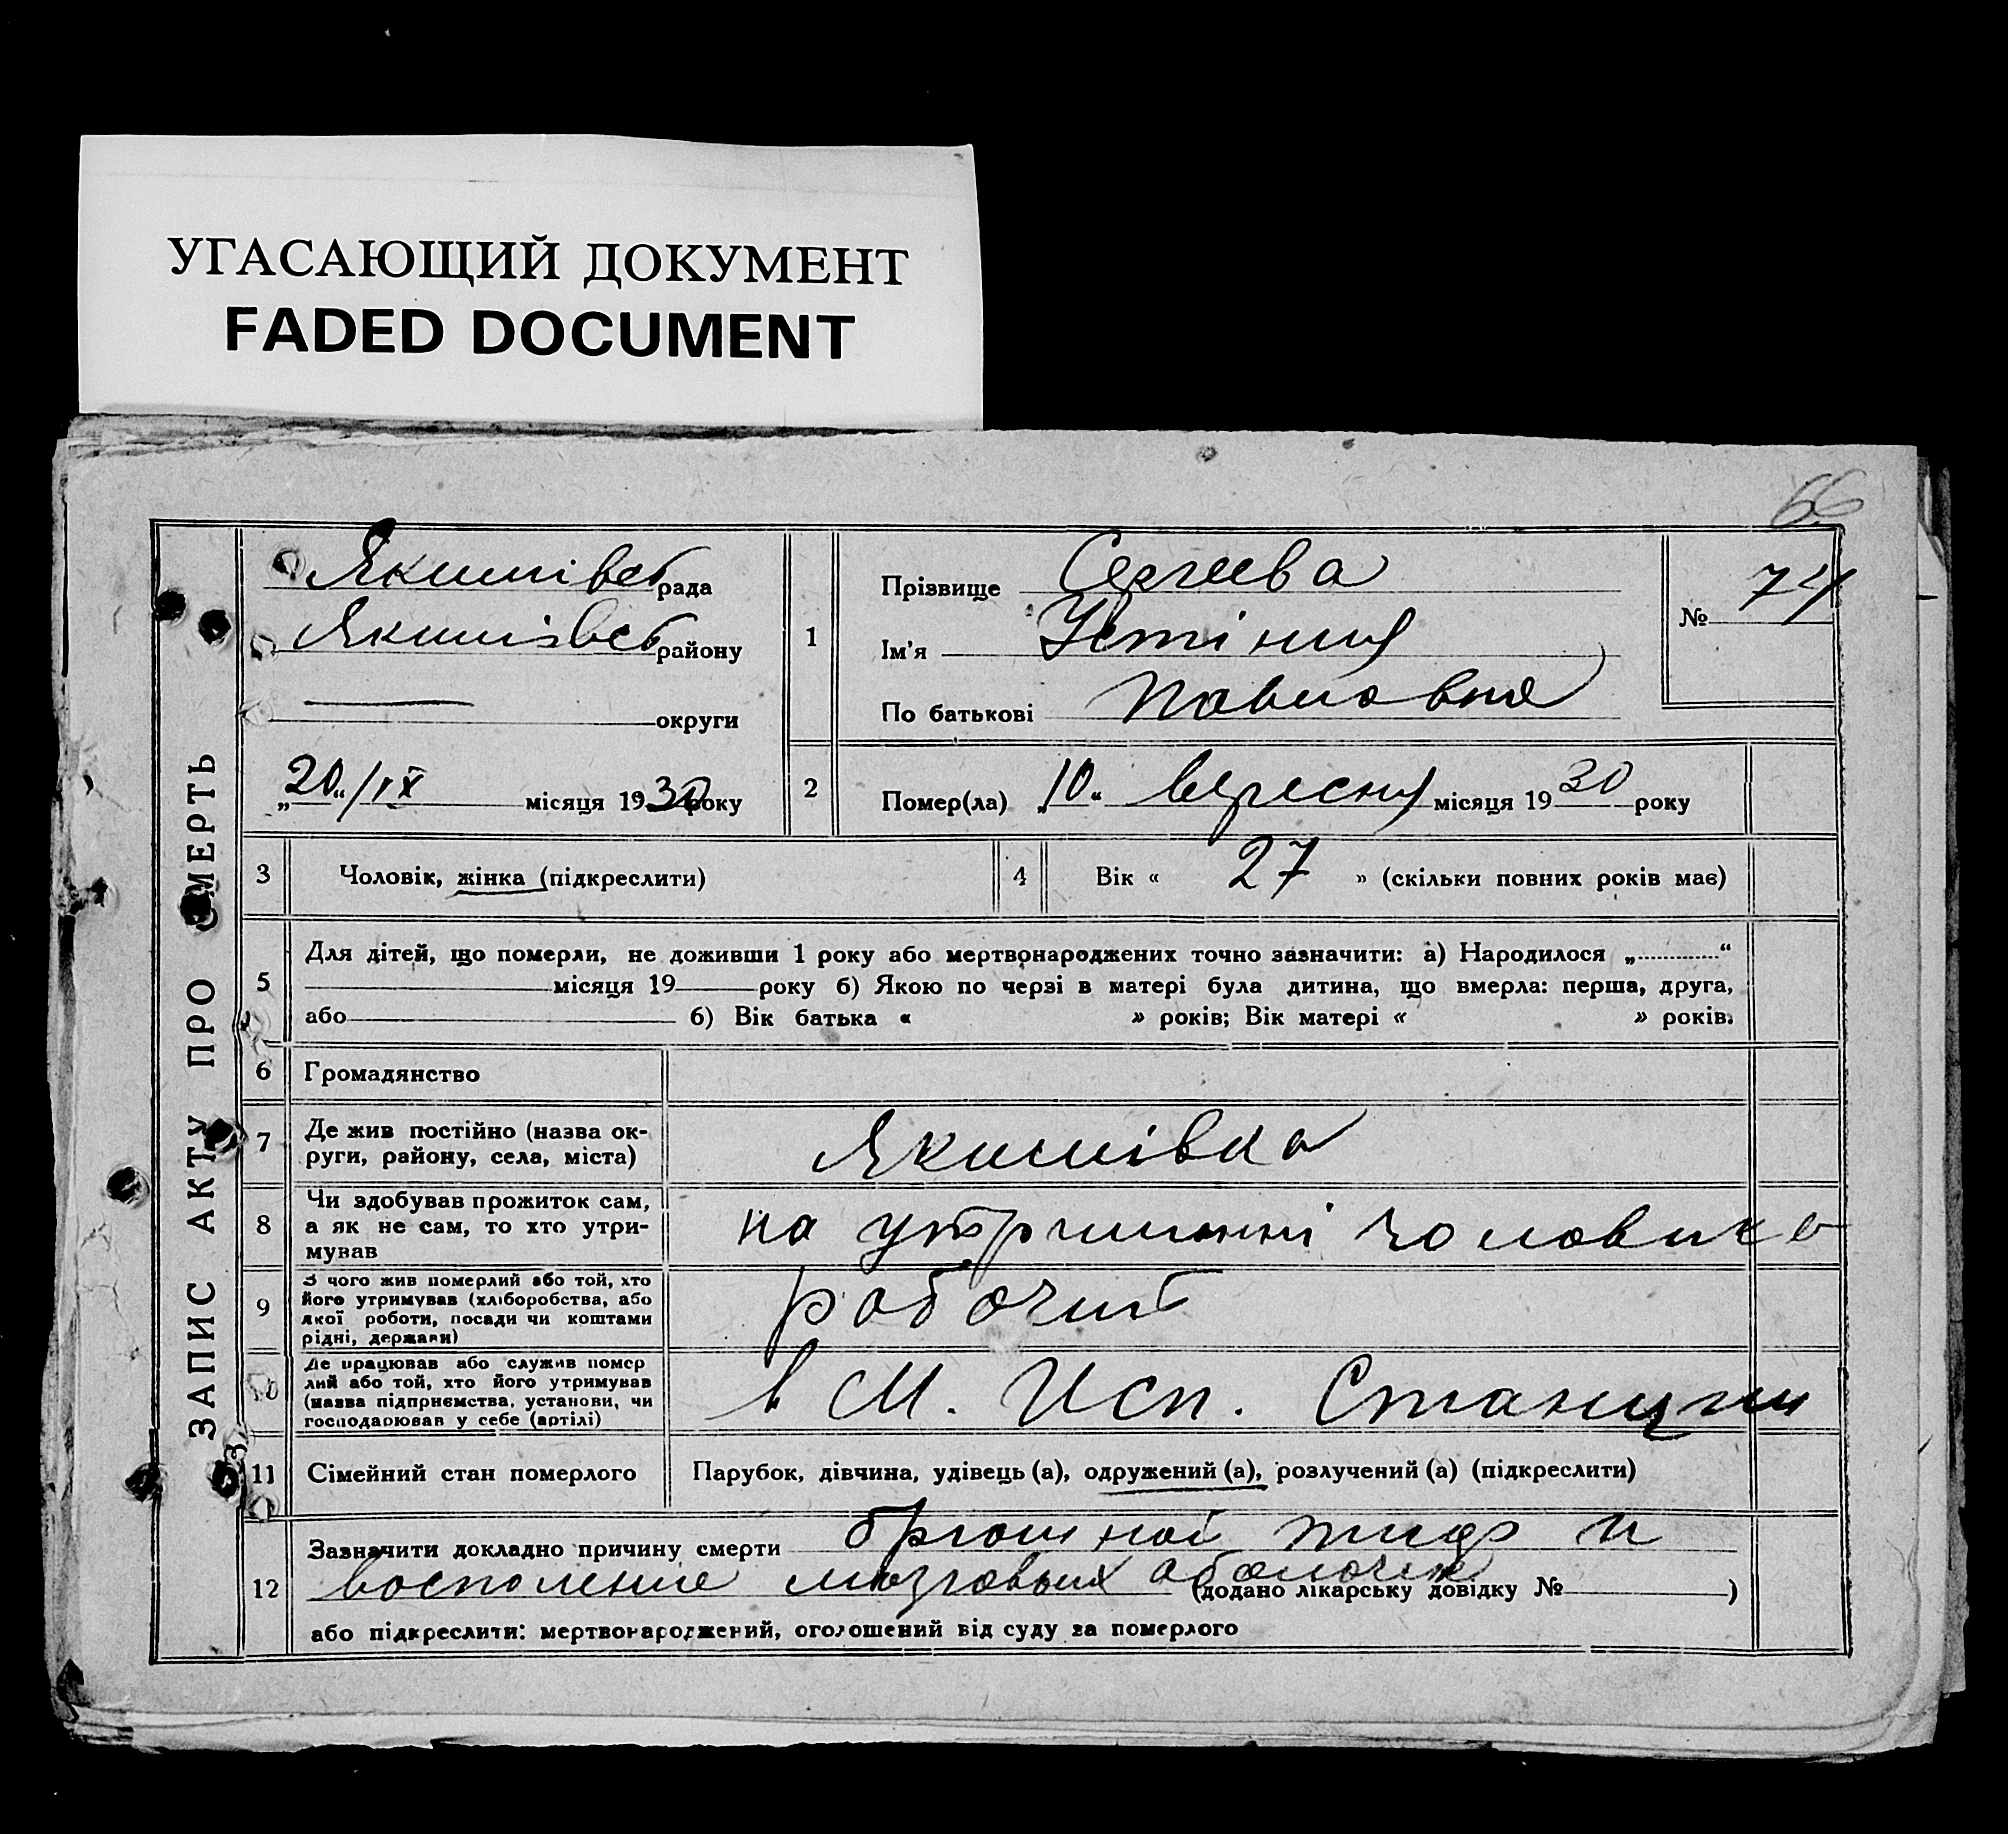 УГАСАЮЩИЙ ДОКУМЕНТ
FADED DOCUMENT
66
ЗАПИС АКТУ ПРО СМЕРТЬ
Якимівсь рада
Якимівсь району
округи
„20“/IX місяця 1930 року
1
Прізвище Сергеева
Ім'я Устіния
По батькові Павловна
№ 74
2
Помер(ла) „10“ вересня місяця 1930 року
3
Чоловік, жінка (підкреслити)
4
Вік « 27 » (скільки повних років має)
5
Для дітей, що померли, не доживши 1 року або мертвонароджених точно зазначити: а) Народилося „ “
місяця 19 року б) Якою по черзі в матері була дитина, що вмерла: перша, друга,
або б) Вік батька « » років; Вік матері « » років.
6
Громадянство
7
Де жив постійно (назва ок-
руги, району, села, міста)
Якимівка
8
Чи здобував прожиток сам,
а як не сам, то хто утри-
мував
на утриманні чоловика
9
З чого жив померлий або той, хто
його утримував (хліборобства, або
якої роботи, посади чи коштами
рідні, держави)
робочий
10
Де працював або служив помер
лий або той, хто його утримував
(назва підприємства, установи, чи
господарював у себе (артілі)
в М. Исп. Станции
11
Сімейний стан померлого
Парубок, дівчина, удівець (а), одружений (а), розлучений (а) (підкреслити)
12
Зазначити докладно причину смерти брюшной тиф и
воспаление мозговых оболочек (додано лікарську довідку № )
або підкреслити: мертвонароджений, оголошений від суду за померлого